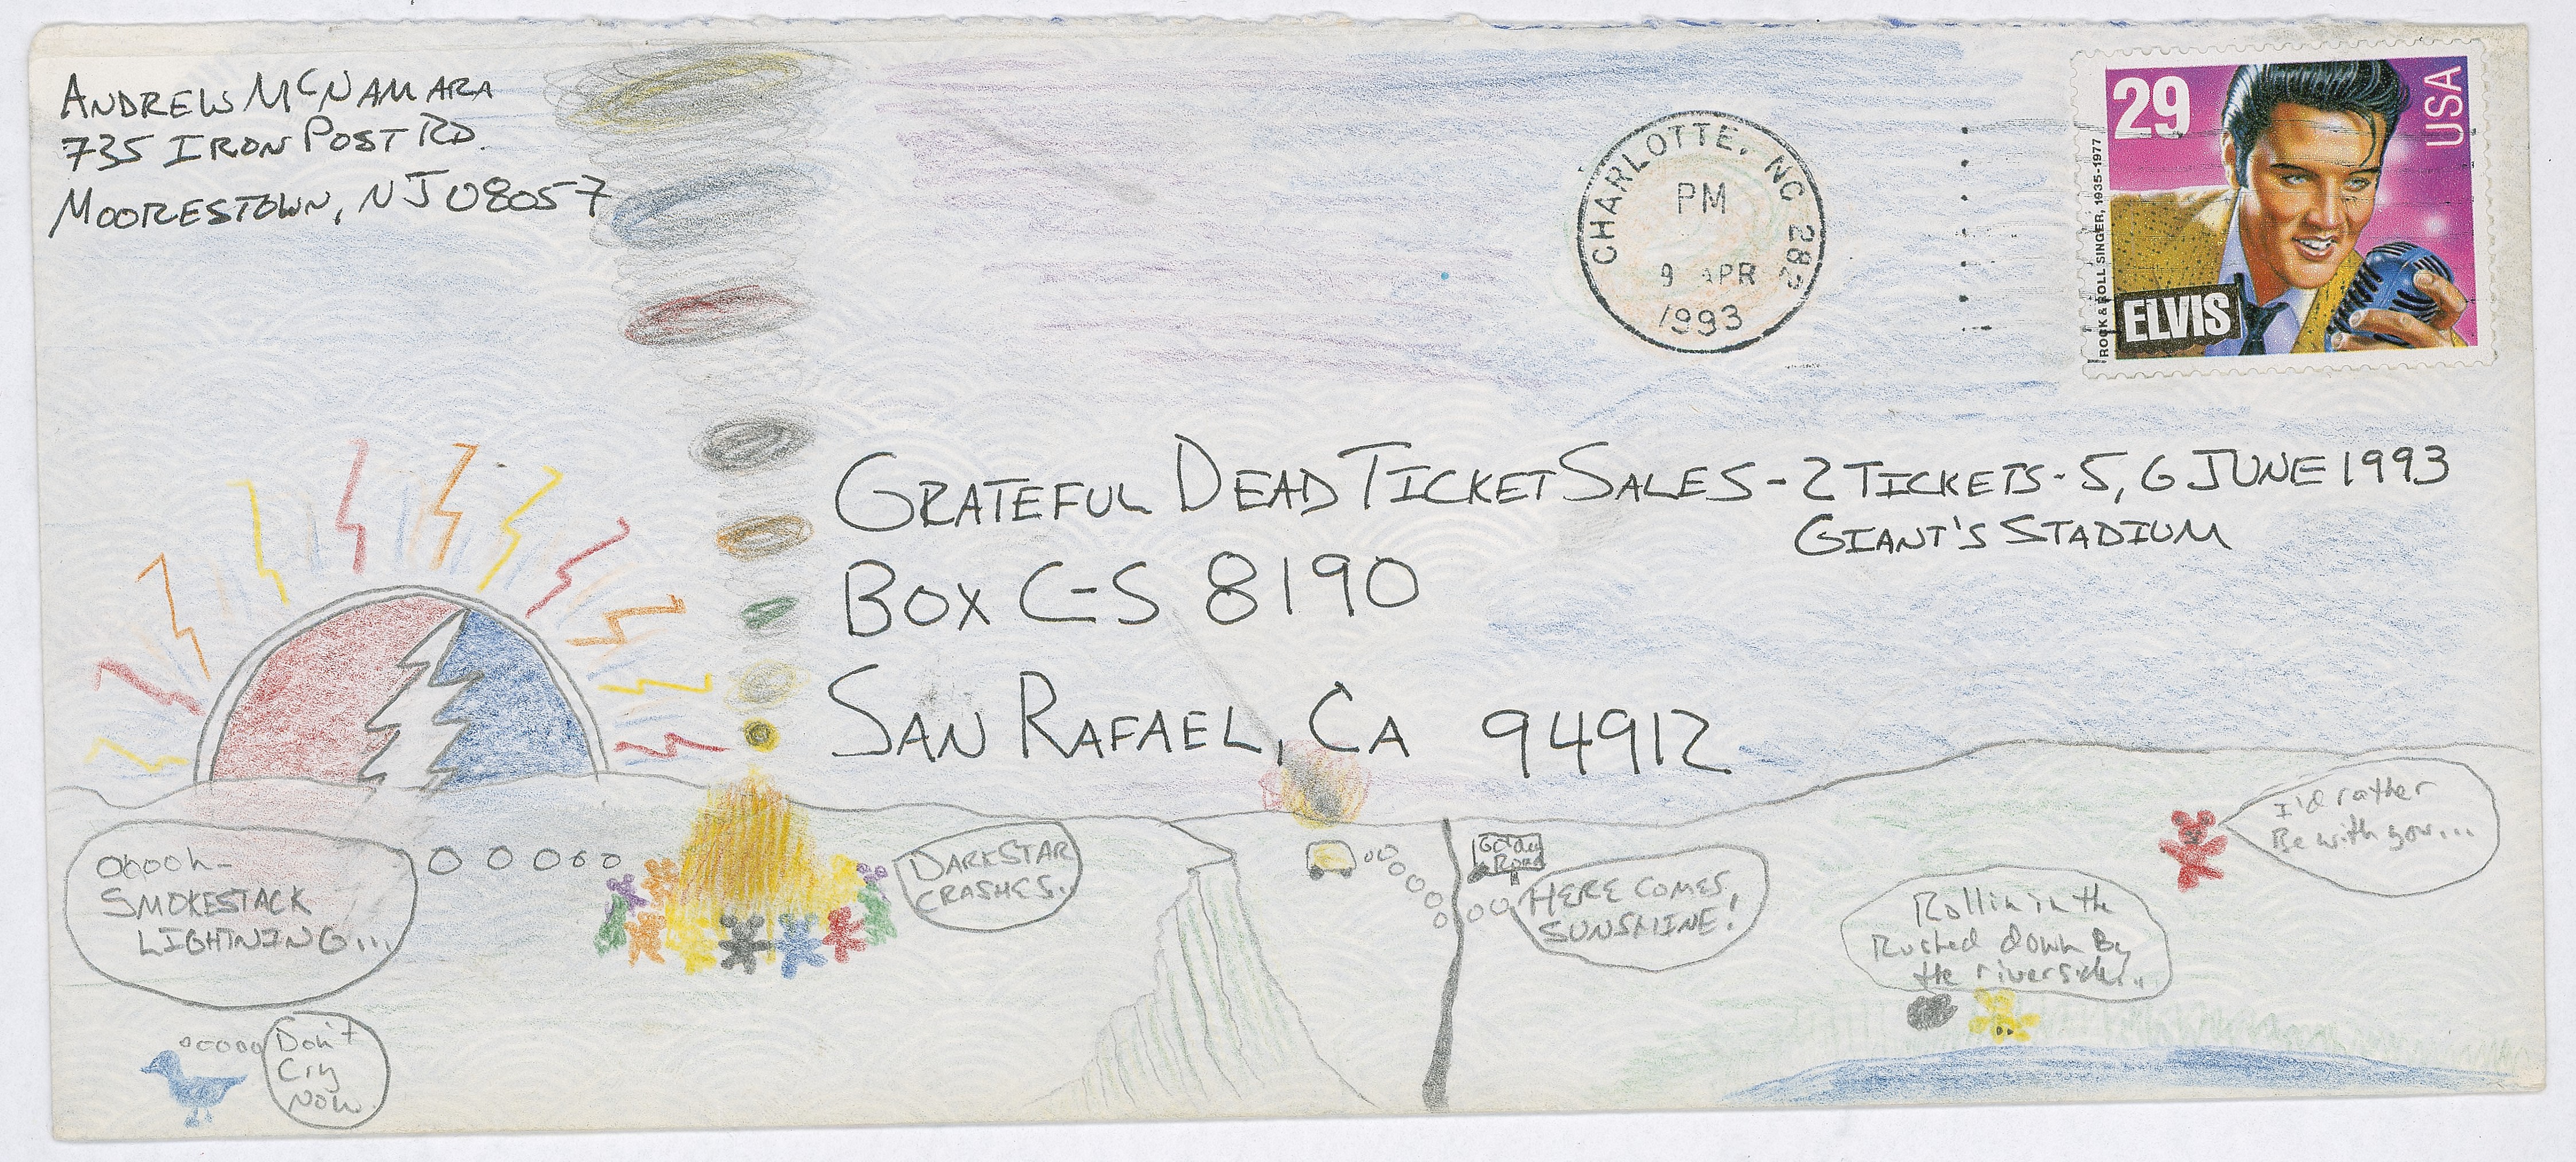 ANDREW McNAMARA
735 IRON POST RD.
MOORESTOWN, NJ 08057
CHARLOTTE, NC 282
PM
9 APR
1993
29
USA
ROCK & ROLL SINGER, 1935-1977
ELVIS
GRATEFUL DEAD TICKET SALES - 2 TICKETS - 5, 6 JUNE 1993
GIANT'S STADIUM
BOX C-S 8190
SAN RAFAEL, CA 94912
Ooooh-
SMOKESTACK
LIGHTNING...
DARK STAR
CRASHES..
Golden
Road
HERE COMES
SUNSHINE!
I'd rather
Be with you...
Rollin in the
Rushed down By
the riverside..
Don't
Cry
Now